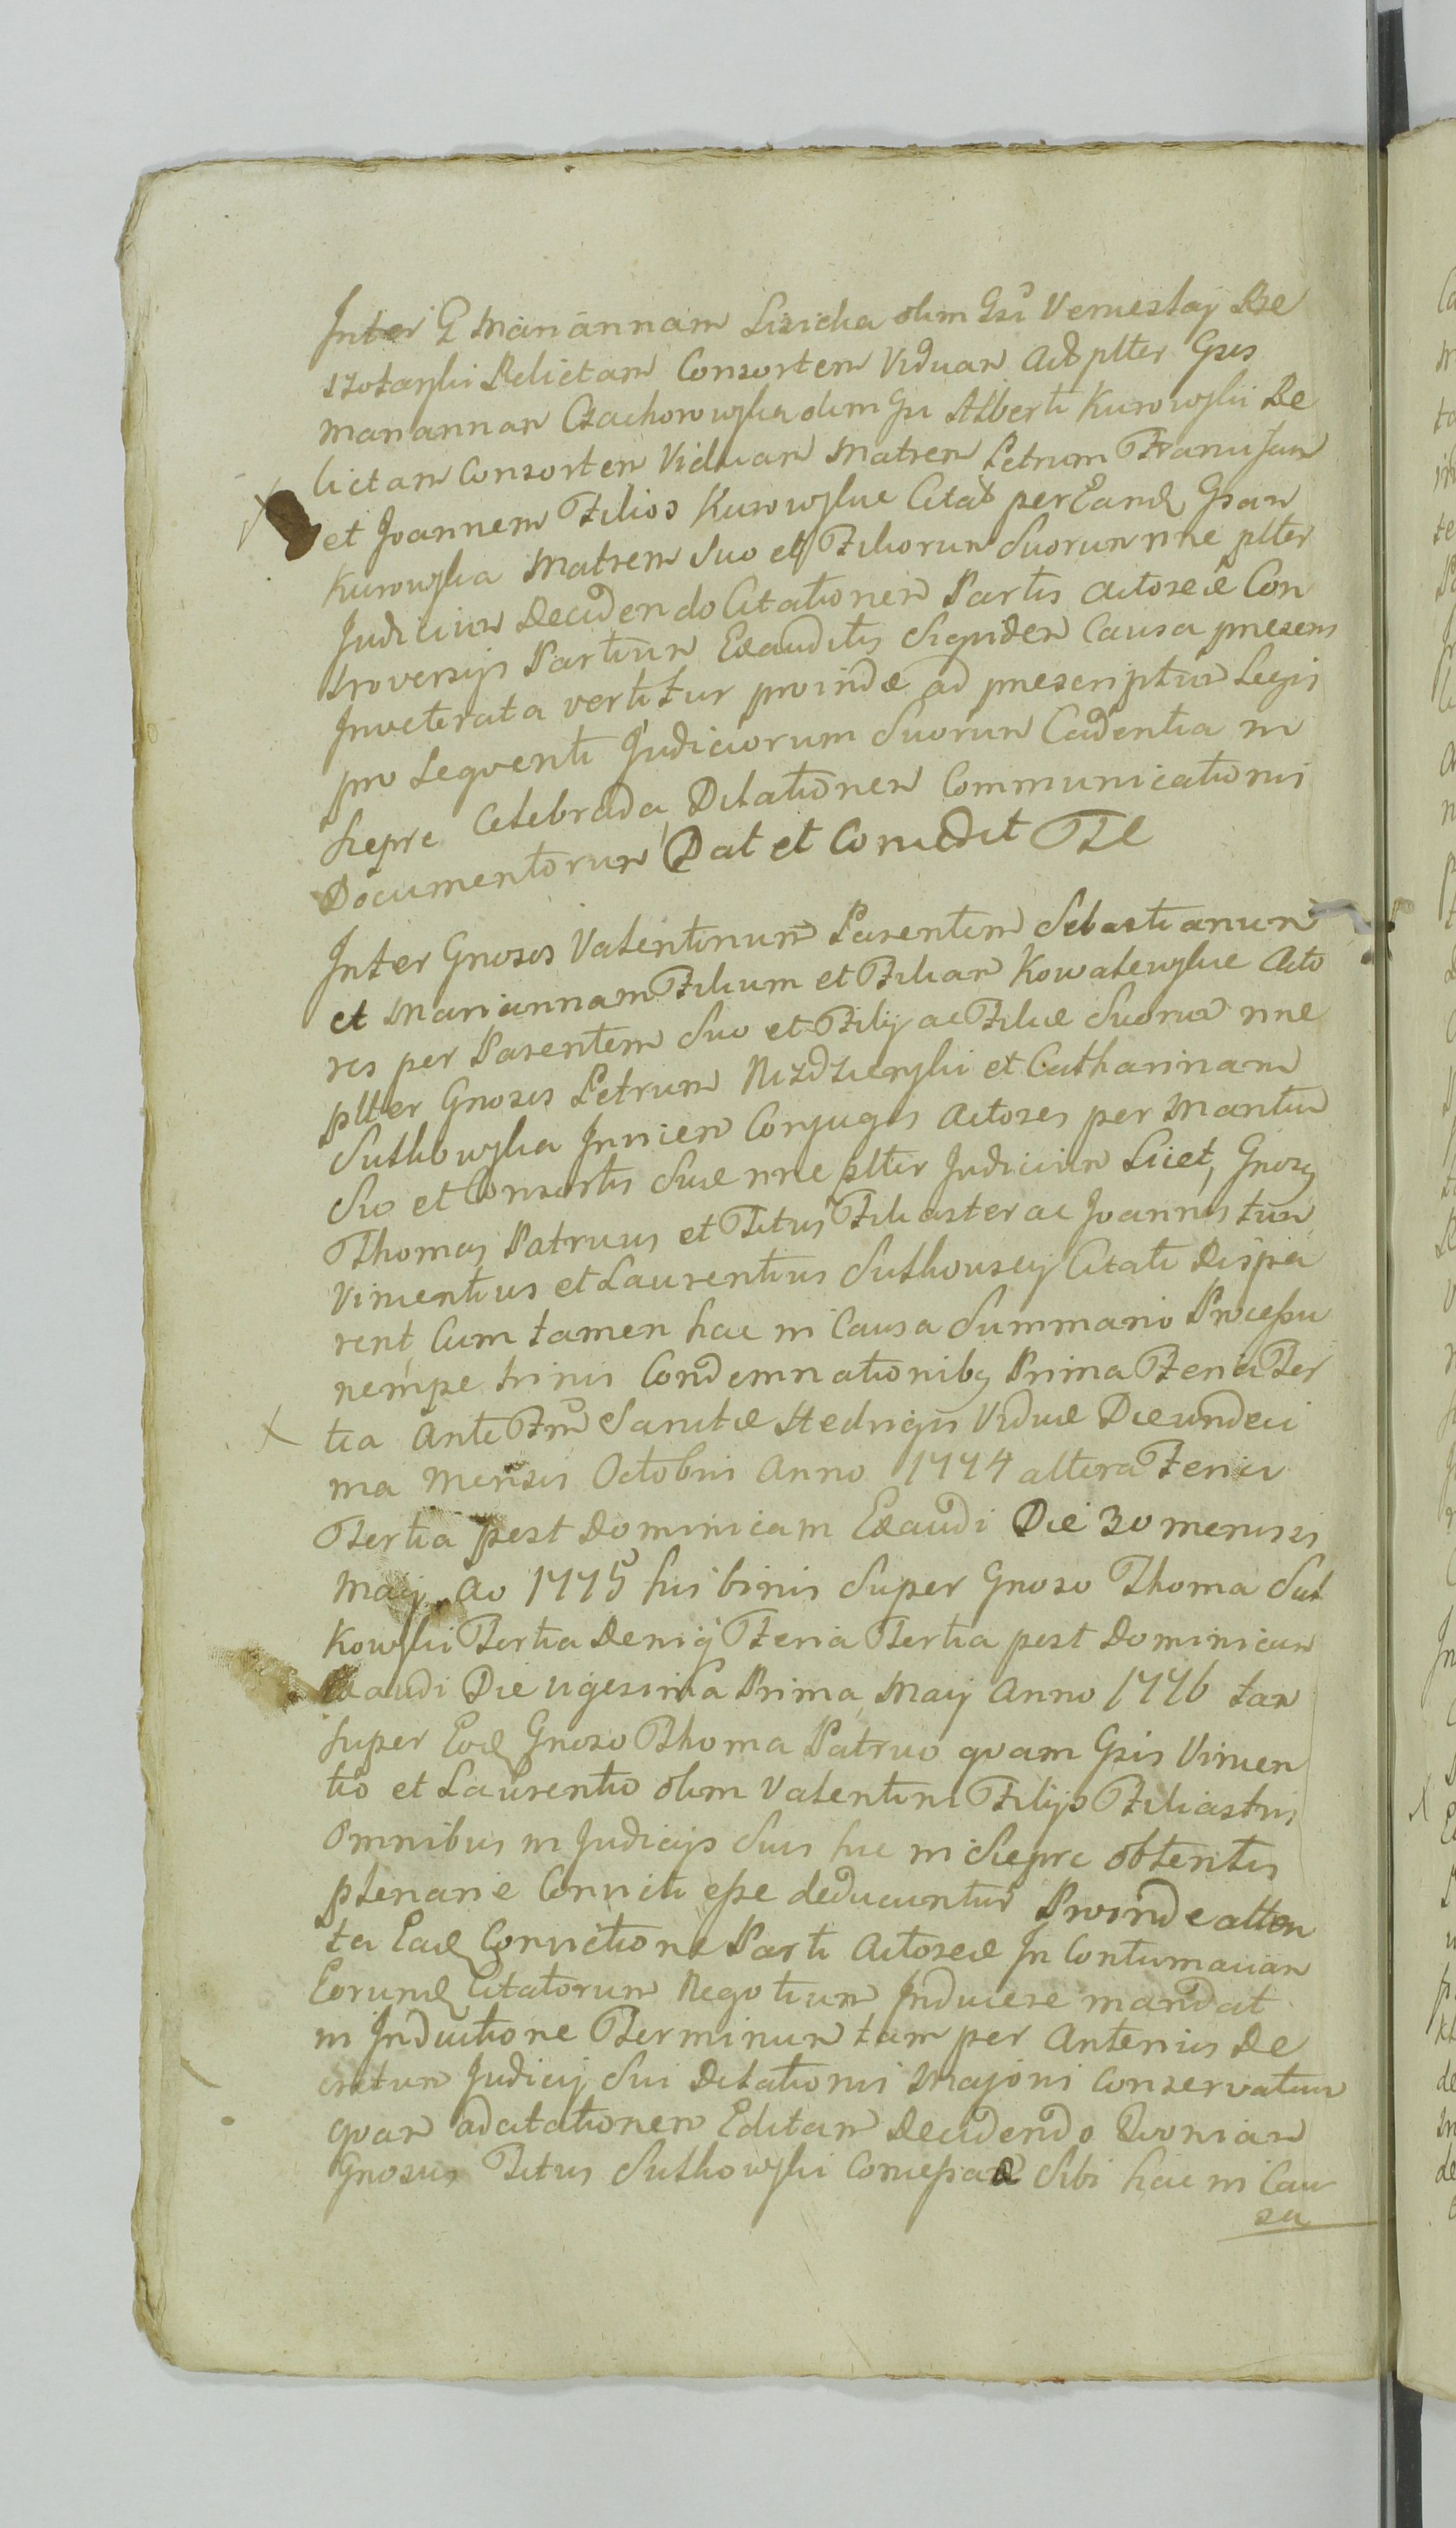 Inter G Mariannam Lisicka olim Gsi Venieslaj Rze
szotarski Relictam Consortem Viduam Act plter Gses
Mariannam Czachorowska olim Gsi Alberti Kurowski Re
lictam Consortem Viduam Matrem Petrum Franciscum
et Joannem Filios Kurowskie Citat per Eand Gsam
Kurowska Matrem Suo et Filiorum Suorum nne plter
Judicium Decidendo Citationem Partis Actoreæ Con
troversijs Partium Exauditis Siquidem Causa præsens
Inveterata vertitur proinde ad præscriptum Legis
pro Sequenti Judiciorum Suorum Cadentia in
Siepre Celebrada Dilationem Communicationis
Documentorum Dat et Concedit
Inter Gnosos Valentinum Parentem Sebastianum
et Mariannam Filium et Filiam Kowalewskie Acto
res per Parentem Suo et Filij ac Filiæ Suorum nne
plter Gnosos Petrum Nizdzienski et Catharinam
Sutkowska Invicem Conjuges Actores per Maritum
Suo et Consortis Suæ nne plter Judicium Licet, Gnosy
Thomas Patruus et Titus Filiaster ac Joannes tum
Vincentius et Laurentius Sutkowscy Citati Dispa
rent, Cum tamen hac in Causa Summario Processu
nempe trinis Condemnationibq Prima Feria Ter
tia Ante Ftm Sanctæ Hedvigis Viduæ Die undeci
ma Mensis Octobris Anno 1774 altera Feria
Tertia post Dominicam Exaudi Die 30 mensis
Maij Ao 1775 his binis Super Gnoso Thoma Sut
kowski Tertia Deniq Feria Tertia post Dominicam
Exaudi Die vigesima Prima Maij Anno 1776 tam
super Eod Gnoso Thoma Patruo quam Gsis Vincen
tio et Laurentio olim Valentini Filijs Filiastris
Omnibus in Judicijs Suis hic in Siepre obtentis
plenarie Convicti esse deducuntur Proinde atten
ta Ead Convictione Parti Actoreæ In Contumaciam
Eorund Citatorum Negotium Inducere mandat
in Inductione Terminum tam per Anterius De
cretum Judicij Sui Dilationis Majoris Conservatum
quam ad citationem Editam Decidendo Quoniam
Gnosus Titus Sutkowski Concessa Sibi hac in Cau
sa